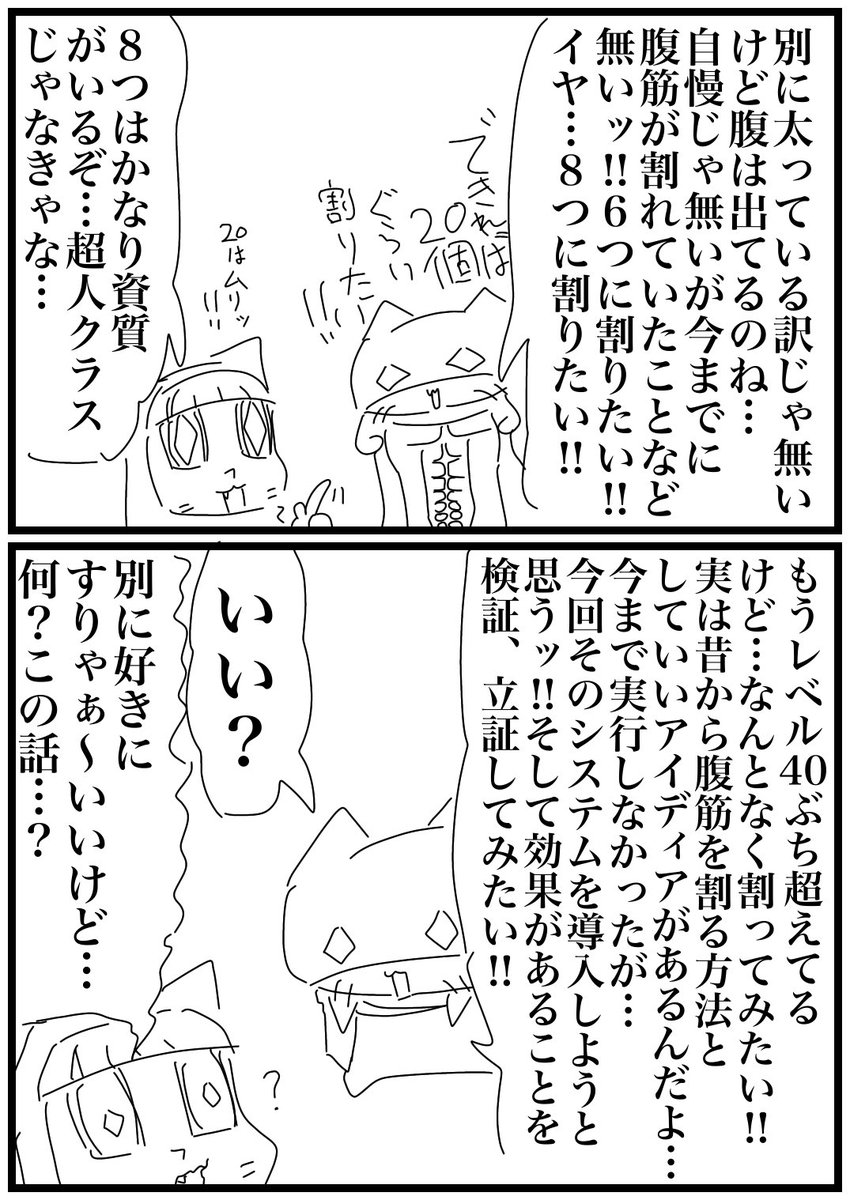 別に太っている訳じゃ無い
けど腹は出てるのね…
自慢じゃ無いが今までに
腹筋が割れていたことなど
無いッ!!6つに割りたい!!
イヤ…8つに割りたい!!
できれば
20個
ぐらい
割りたい!!
20はムリッ!!
8つはかなり資質
がいるぞ…超人クラス
じゃなきゃな…
もうレベル40ぶち超えてる
けど…なんとなく割ってみたい!!
実は昔から腹筋を割る方法と
していいアイディアがあるんだよ…
今まで実行しなかったが…
今回そのシステムを導入しようと
思うッ!!そして効果があることを
検証、立証してみたい!!
いい?
別に好きに
すりゃぁ～いいけど…
何?この話…?
?